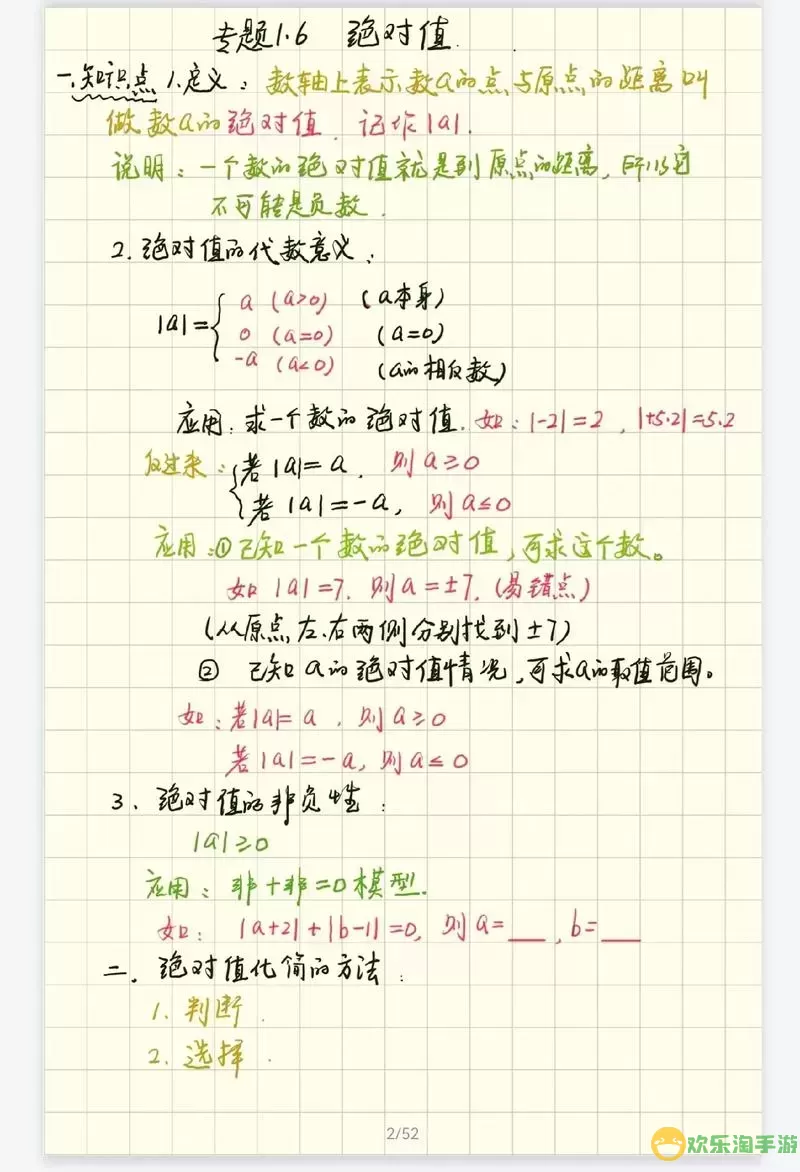 专题1.6 绝对值
一.知识点 1.定义：数轴上表示数a的点与原点的距离叫
做数a的绝对值，记作|a|.
说明：一个数的绝对值就是到原点的距离，所以它
不可能是负数.
2.绝对值的代数意义：
|a|={ a (a>0) (a本身)
0 (a=0) (a=0)
-a (a<0) (a的相反数)
应用：求一个数的绝对值.如：|-2|=2，|+5.2|=5.2
反过来：{ 若|a|=a，则a≥0
若|a|=-a，则a≤0
应用：①已知一个数的绝对值，可求这个数。
如|a|=7，则a=±7.(易错点)
(从原点左、右两侧分别找到±7)
② 已知a的绝对值情况，可求a的取值范围。
如：若|a|=a，则a≥0
若|a|=-a，则a≤0
3、绝对值的非负性：
|a|≥0
应用：非+非=0模型.
如：|a+2|+|b-1|=0，则a=___，b=___
二.绝对值化简的方法：
1.判断.
2.选择.
2/52
欢乐淘手游